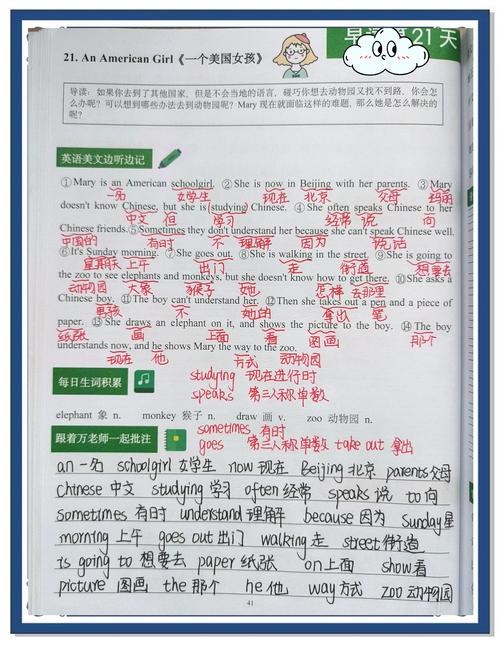 早读第21天
21. An American Girl《一个美国女孩》
导读：如果你去到了其他国家，但是不会当地的语言，碰巧你想去动物园又找不到路，你会怎
么办呢？可以想到哪些办法去到动物园呢？Mary 现在就面临这样的难题，那么她是怎么解决的
呢？
英语美文边听边记
①Mary is an American schoolgirl. ②She is now in Beijing with her parents. ③Mary
一名 女学生 现在 北京 父母 玛丽
doesn't know Chinese, but she is (studying) Chinese. ④She often speaks Chinese to her
中文 但 学习 经常 说 向
Chinese friends.⑤Sometimes they don't understand her because she can't speak Chinese well.
中国的 有时 不 理解 因为 说话
⑥It's Sunday morning. ⑦She goes out. ⑧She is walking in the street. ⑨She is going to
星期天上午 出门 走 街道 想要去
the zoo to see elephants and monkeys, but she doesn't know how to get there. ⑩She asks a
动物园 大象 猴子 她 怎样去那里
Chinese boy. ⑪The boy can't understand her. ⑫Then she takes out a pen and a piece of
男孩 不 她的 拿出 笔
paper. ⑬She draws an elephant on it, and shows the picture to the boy. ⑭The boy
纸张 画 上面 看 图画 那个
understands now, and he shows Mary the way to the zoo.
现在 他 方式 动物园
studying 现在进行时
每日生词积累
speaks 第三人称单数
elephant 象 n. monkey 猴子 n. draw 画 v. zoo 动物园 n.
sometimes 有时
跟着万老师一起批注
goes 第三人称单数 take out 拿出
an 一名 schoolgirl 女学生 now 现在 Beijing 北京 parents 父母
Chinese 中文 studying 学习 often 经常 speaks 说 to 向
sometimes 有时 understand 理解 because 因为 Sunday 星
morning 上午 goes out 出门 walking 走 street 街道
is going to 想要去 paper 纸张 on 上面 show 看
picture 图画 the 那个 he 他 way 方式 zoo 动物园
41